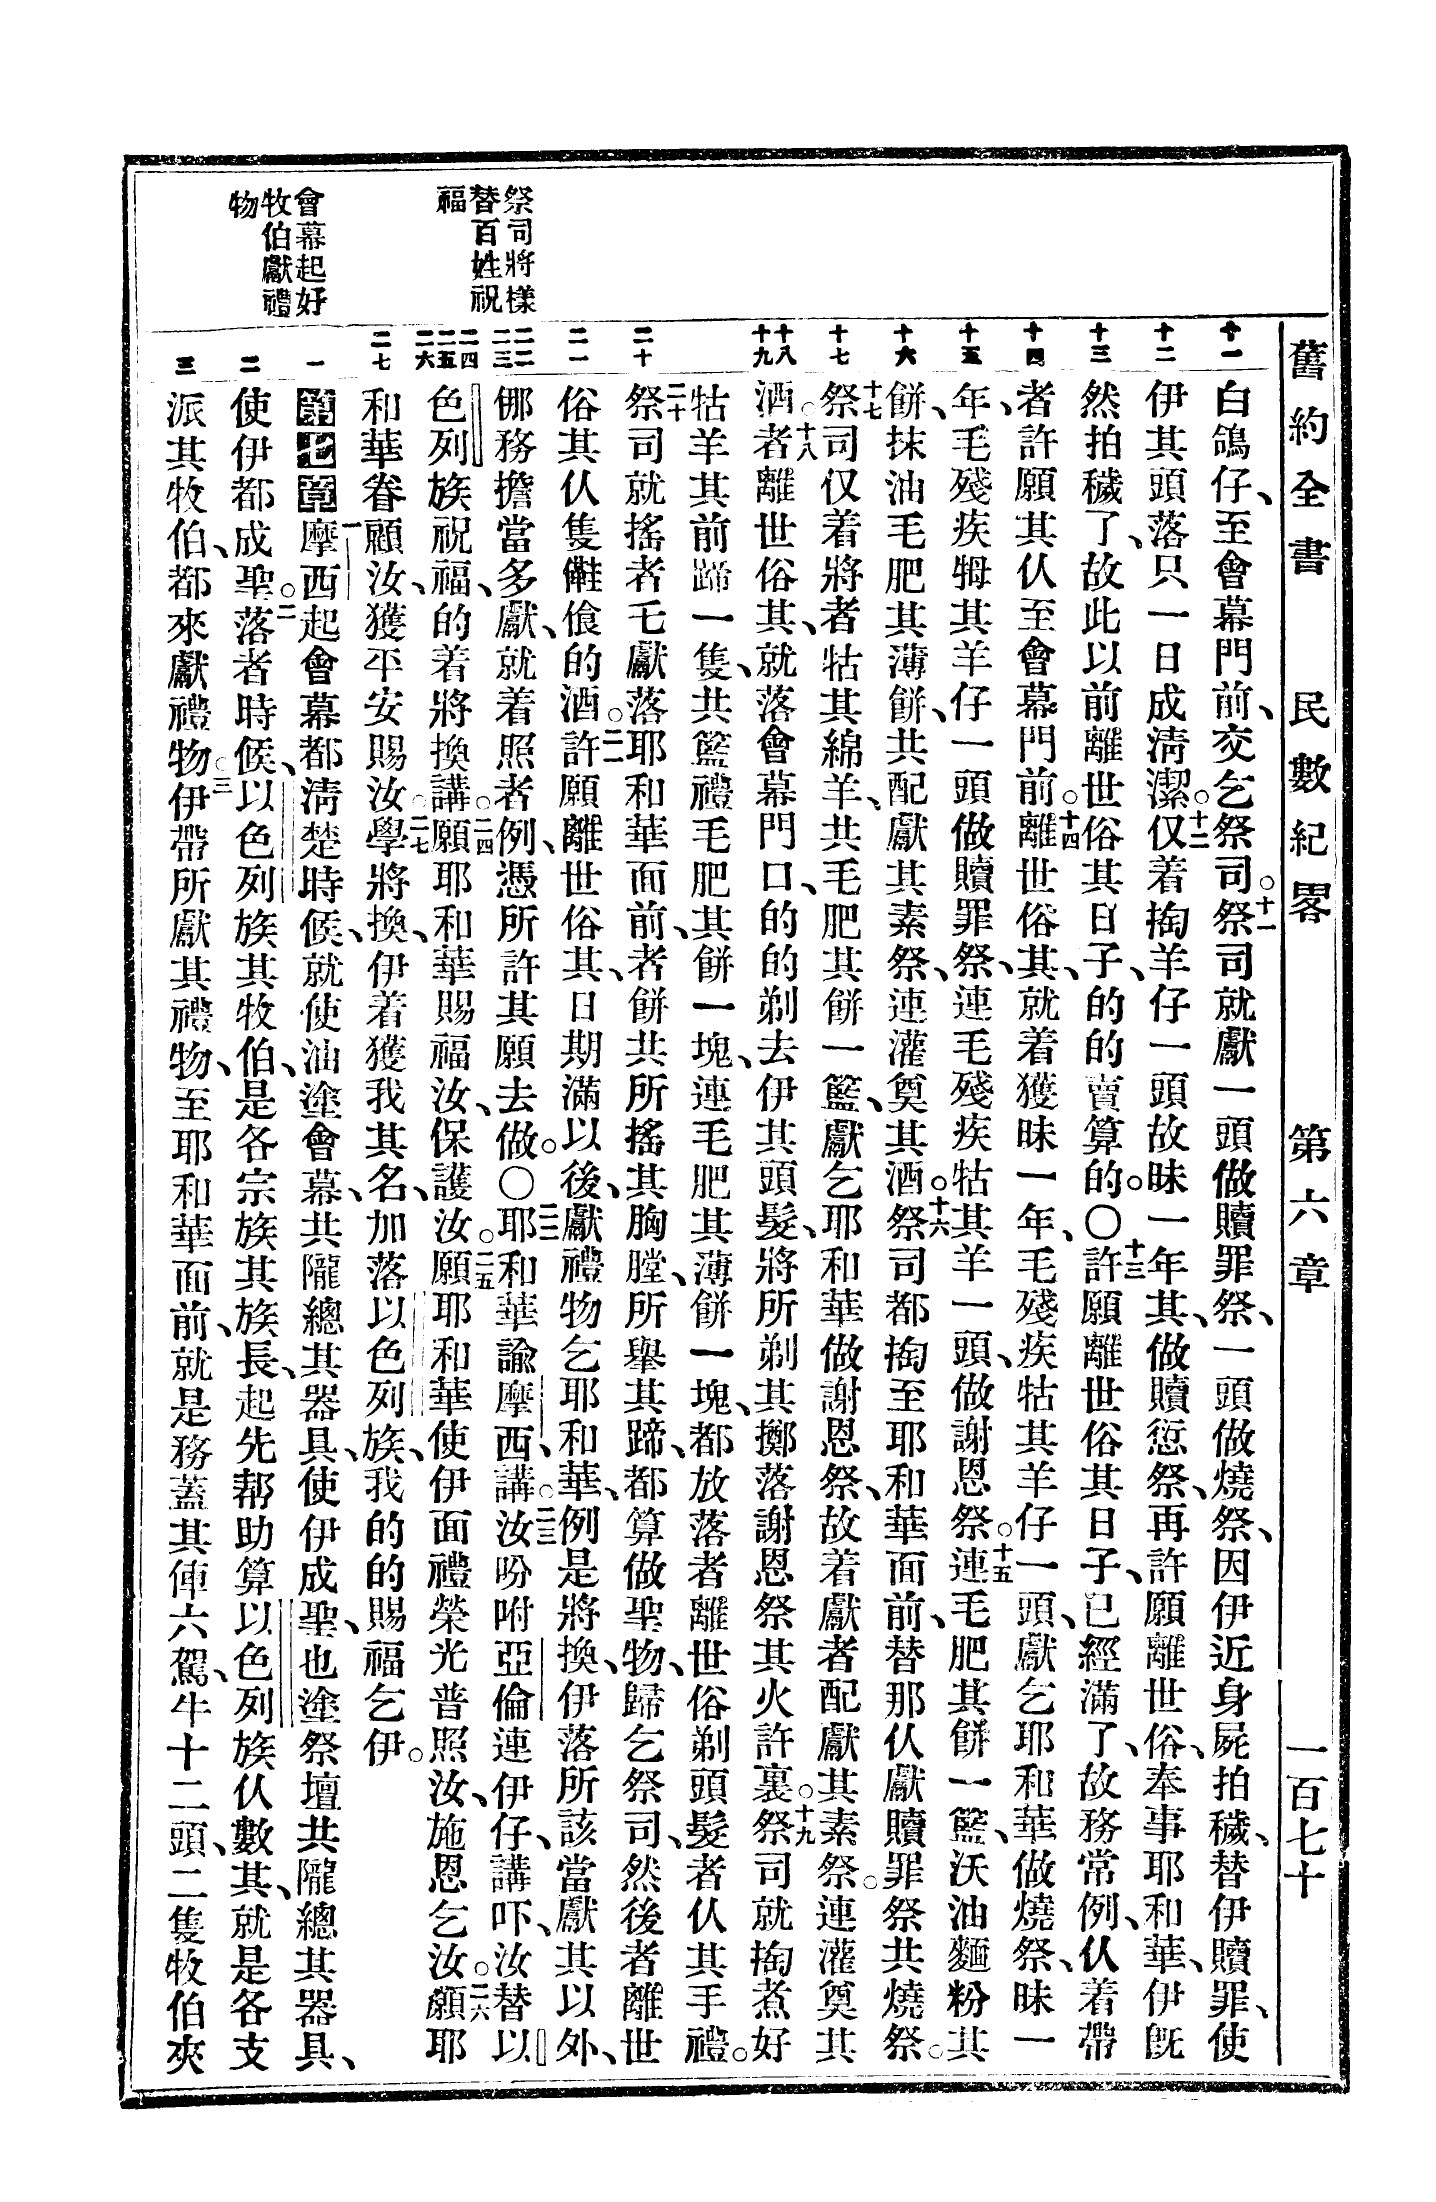 舊約全書 民數紀畧 第六章 一百七十
祭司將樣
替百姓祝
福
會幕起好
牧伯獻禮
物
十一
十二
十三
十四
十五
十六
十七
十八 十九
二十
二一
二二 二三
二四 二五 二六
二七
一
二
三
白鴿仔、至會幕門前、交乞祭司。十一祭司就獻一頭做贖罪祭、一頭做燒祭、因伊近身屍拍穢、替伊贖罪、使
伊其頭落只一日成淸潔。十二仅着掏羊仔一頭故昧一年其、做贖愆祭、再許願離世俗、奉事耶和華、伊旣
然拍穢了、故此以前離世俗其日子、的的賣算的。〇十三許願離世俗其日子、已經滿了、故務常例、仅着帶
者許願其仅至會幕門前。十四離世俗其、就着獲昧一年、毛殘疾牯其羊仔一頭、獻乞耶和華做燒祭、昧一
年、毛殘疾㹀其羊仔一頭做贖罪祭、連毛殘疾牯其羊一頭、做謝恩祭。十五連毛肥其餅一籃、沃油麵粉其
餅、抹油毛肥其薄餅、共配獻其素祭、連灌奠其酒。十六祭司都掏至耶和華面前、替那仅獻贖罪祭共燒祭。
十七祭司仅着將者牯其綿羊、共毛肥其餅一籃、獻乞耶和華做謝恩祭、故着獻者配獻其素祭。連灌奠其
酒。十八者離世俗其、就落會幕門口、的的剃去伊其頭髮、將所剃其擲落謝恩祭其火許裏。十九祭司就掏煮好
牯羊其前蹄一隻、共籃禮毛肥其餅一塊、連毛肥其薄餅一塊、都放落者離世俗剃頭髮者仅其手禮。
二十祭司就搖者乇獻落耶和華面前、者餅共所搖其胸膛、所舉其蹄、都算做聖物、歸乞祭司、然後者離世
俗其仅隻𠆧食的酒。二一許願離世俗其、日期滿以後、獻禮物乞耶和華、例是將換、伊落所該當獻其以外、
𠆧務擔當多獻、就着照者例、憑所許其願去做。〇二二耶和華諭摩西、講。二三汝吩咐亞倫連伊仔、講吓、汝替以
色列族祝福、的着將換講。二四願耶和華賜福汝、保護汝。二五願耶和華使伊面禮榮光普照汝、施恩乞汝。二六願耶
和華眷顧汝、獲平安賜汝。二七學將換、伊着獲我其名、加落以色列族、我的的賜福乞伊。
第七章摩西起會幕都淸楚時候、就使油塗會幕、共隴總其器具、使伊成聖、也塗祭壇共隴總其器具、
使伊都成聖。二落者時候、以色列族其牧伯、是各宗族其族長、起先帮助算以色列族仅數其、就是各支
派其牧伯、都來獻禮物。三伊帶所獻其禮物、至耶和華面前、就是務蓋其俥六駕、牛十二頭、二隻牧伯夾